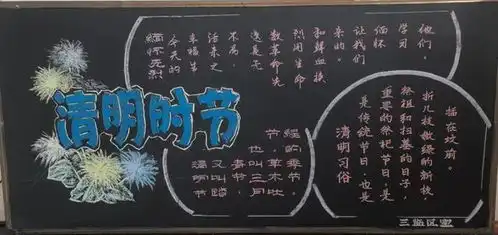 清明时节
缅怀先烈
今天的
幸福生
活来之
无
数革命先
烈用生命
和鲜血换
来的.
让我们
缅怀
学习
他们。
清明节
又叫踏
青节,
也叫三月
节,草木吐
绿的季节,
清明习俗
是传统节日,也是
重要的祭祀节日,是
祭祖和扫墓的日子,
折几枝嫩绿的新枝,
插在坟前。
三监区宣